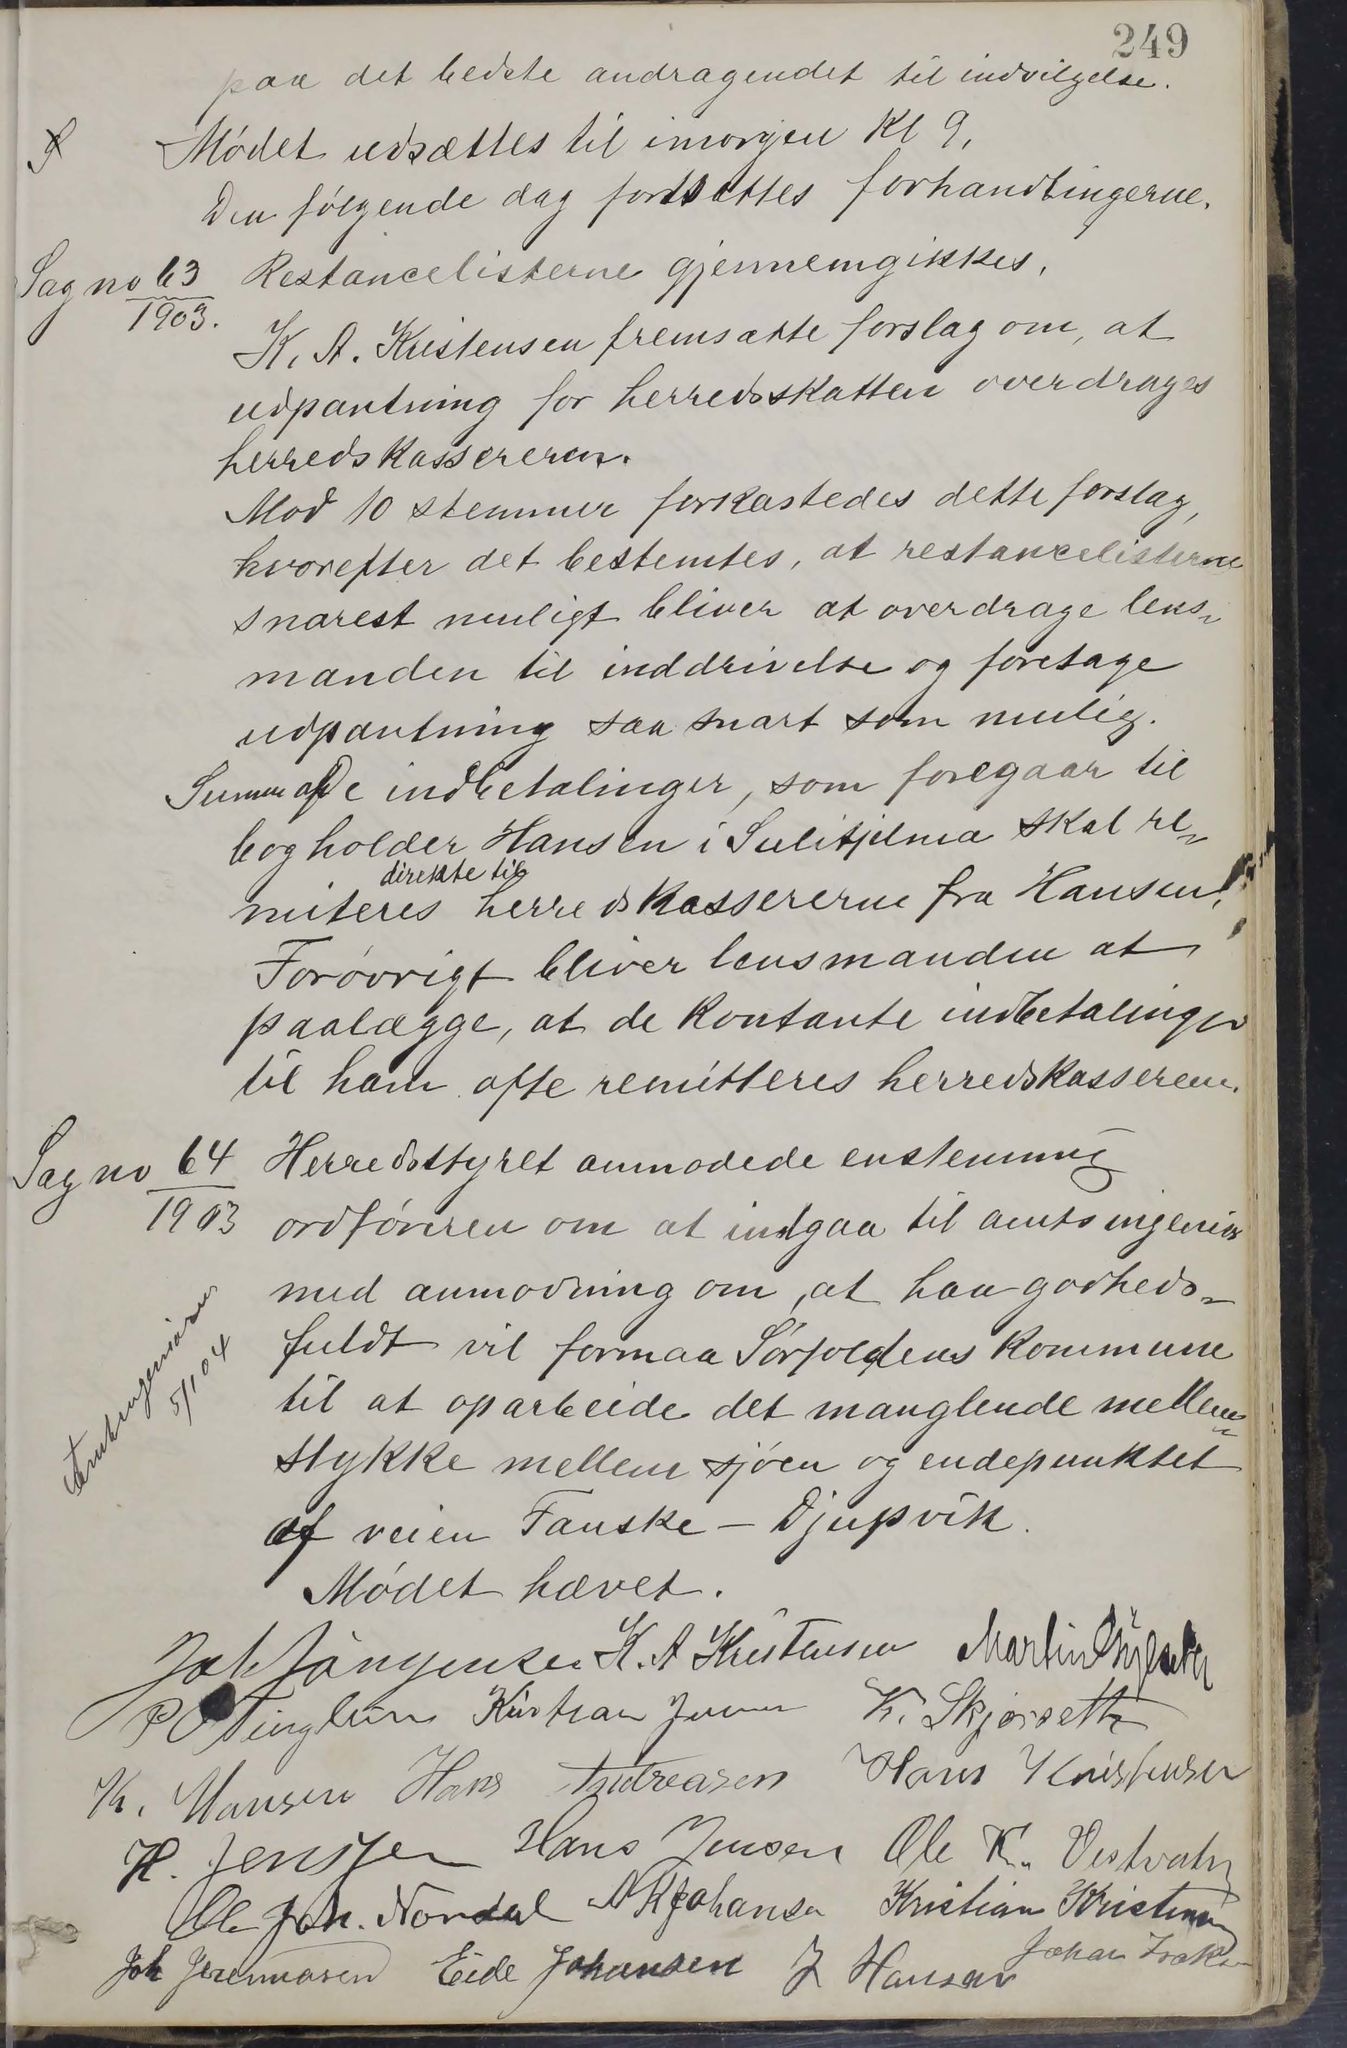 249
paa det bedste andragendet til indvilgelse.
Mødet udsættes til imorgen Kl 9.
Den følgende dag fortsattes forhandlingerne.
Sag no 63/1903. Restancelisterne gjennemgikkes.
K. A. Kristensen fremsatte forslag om, at
udpantning for herredsskatten overdrages
herredskassereren.
Mod 10 stemmer forkastedes dette forslag,
hvorefter det bestemtes, at restancelisterne
snarest muligt bliver at overdrage lens-
manden til inddrivelse og foretage
udpantning saa snart som mulig.
Summen af De indbetalinger, som foregaar til
bogholder Hansen i Sulitjelma skal re-
direkte til
miteres herredskassererne fra Hansen.
Forøvrigt bliver lensmanden at
paalægge, at de kontante indbetalinger
til ham ofte remitteres herredskasseren.
Sag no 64/1903 Herredsstyret anmodede enstemmig
ordføreren om at indgaa til amtsingeniør
med anmodning om, at han godheds-
fuldt vil formaa Sørfoldens kommune
til at oparbeide det manglende mellem-
stykke mellem sjøen og endepunktet
af veien Fauske - Djupvik.
Amtsingeniøren
5/1 04
Mødet hævet.
Joh Jørgensen K. A Kristensen Martin
P Tinglum Kristian Jensen K. Skjerseth
K. Hansen Hans Andreasen Hans Kristensen
H. Jenssen Hans Jensen Ole K. Vestvatn
Ole Joh. Nordal Johansen Kristian Kristensen
Joh Jeremiasen Eide Johansen J Hansen Johan Isaksen